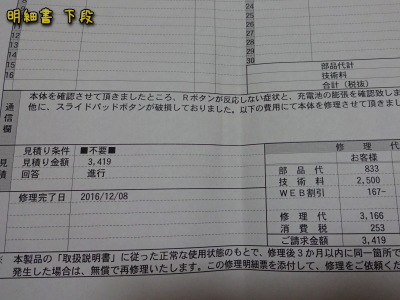 明細書 下段
13
14
15
16
30
部品代計
技術料
合計（税抜）
通信欄
本体を確認させて頂きましたところ、Rボタンが反応しない症状と、充電池の膨張を確認致しま
他に、スライドパッドボタンが破損しておりました。以下の費用にて本体を修理させて頂きまし
見積
見積り条件 ■不要■
見積り金額 3,419
回答 進行
修理完了日 2016/12/08
修理代
お客様
部品代 833
技術料 2,500
WEB割引 167-
修理代 3,166
消費税 253
ご請求金額 3,419
※ 本製品の「取扱説明書」に従った正常な使用状態のもとで、修理後3か月以内に同一箇所で
発生した場合は、無償で再修理いたします。この修理明細票を添付して、修理をご依頼くださ